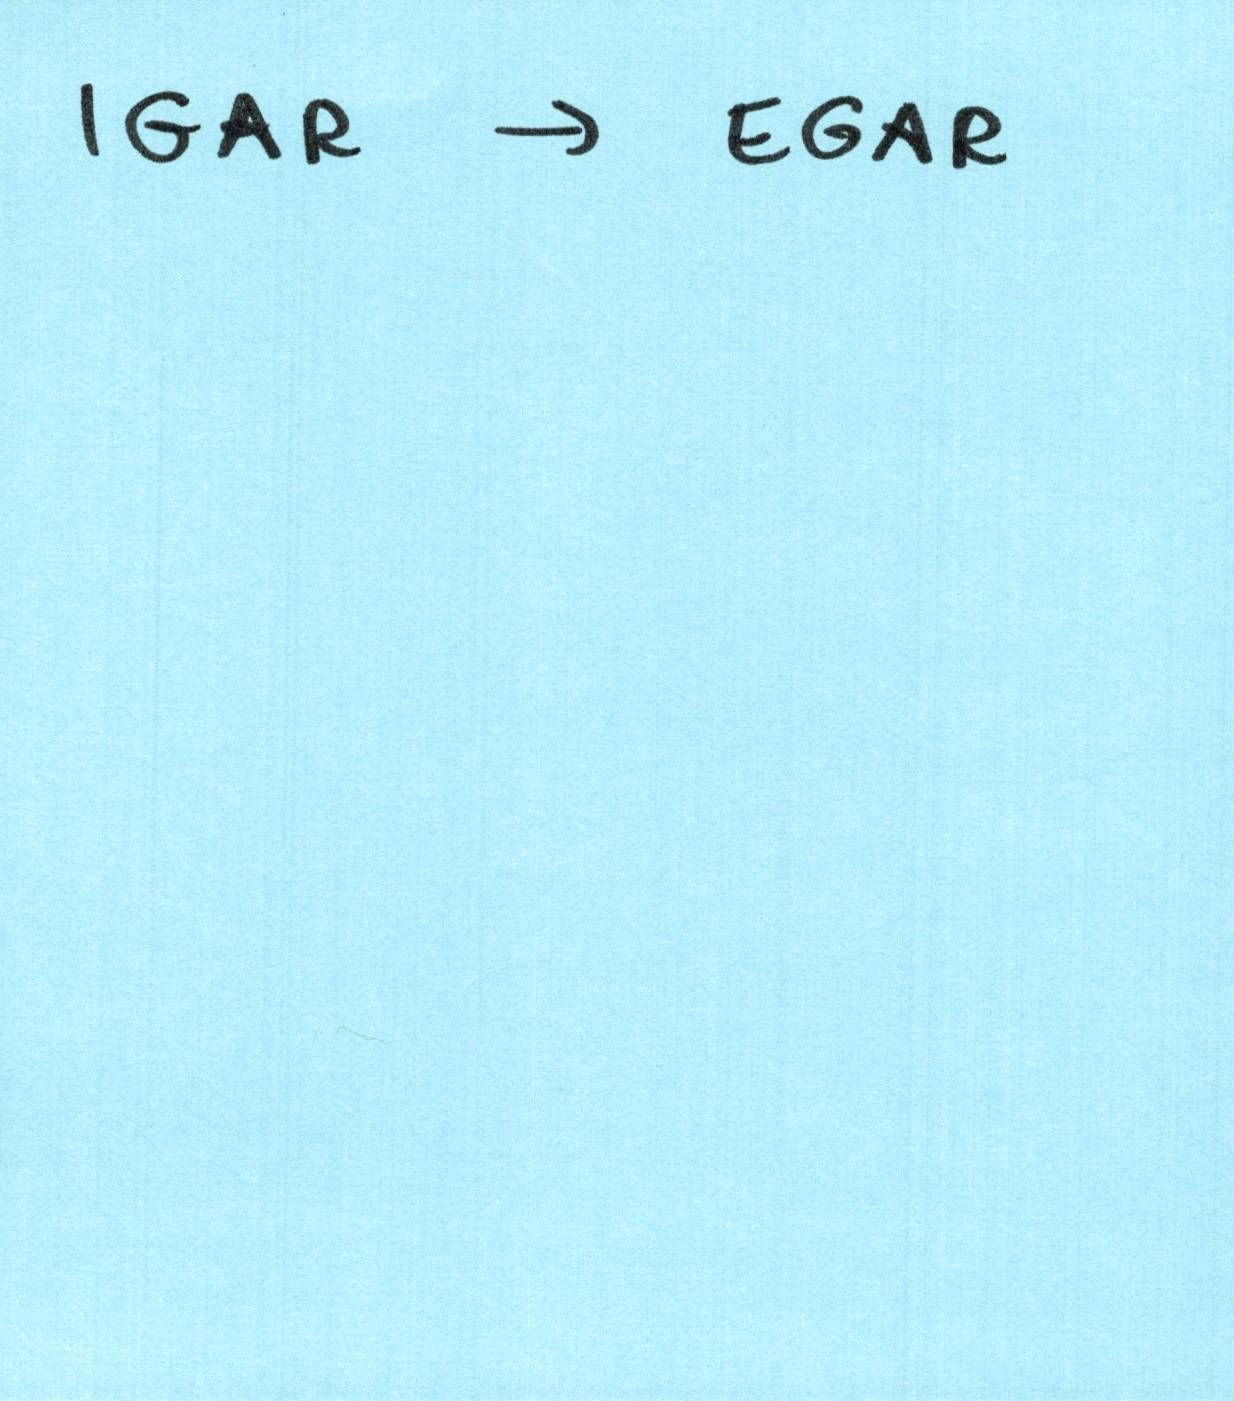 IGAR → EGAR